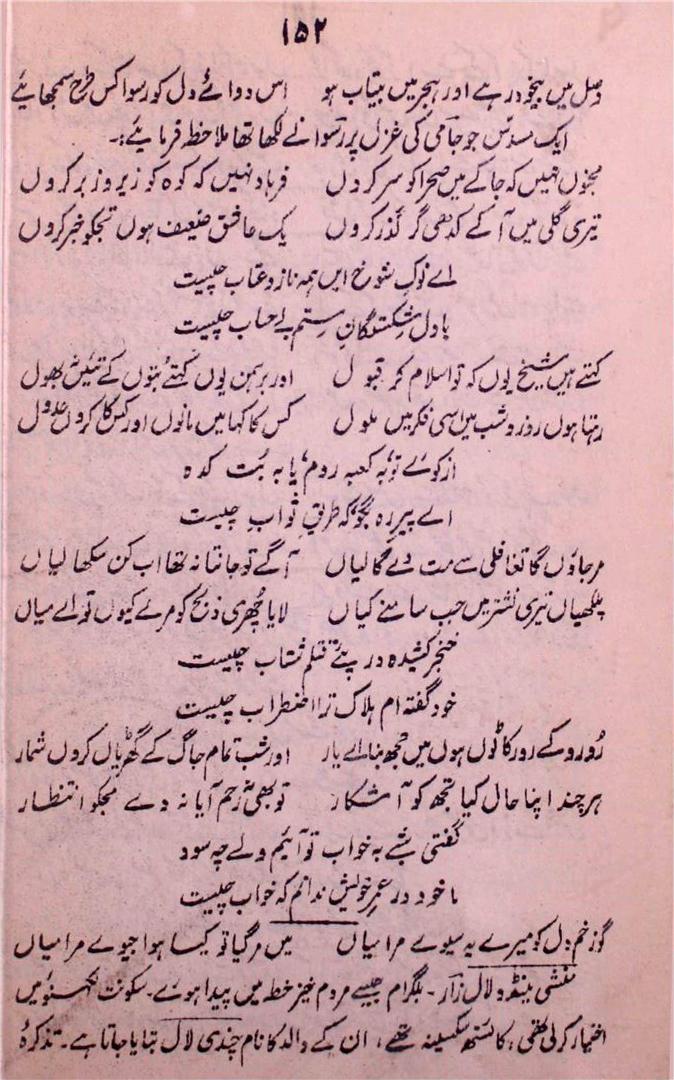 ۱۵۲
وصل میں بیخود رہے اور ہجر میں بیتاب ہو اس دوائے دل کو رسوا کس طرح سمجھایئے
ایک مسدّس جو جامی کی غزل پر رسوا نے لکھا تھا ملاحظہ فرمایئے:۔
مجنوں نہیں کہ جا کے میں صحرا کو سر کروں فرہاد نہیں کہ کوہ کو زیر و زبر کروں
تیری گلی میں آ کے کدھی گر گذر کروں یک عاشق ضعیف ہوں تجکو خبر کروں
اے نوک شوخ ایں ہمہ ناز و عتاب چیست
با دل شکستگانِ ستم بے حساب چیست
کہتے ہیں شیخ یوں کہ تو اسلام کر قبول اور برہمن یوں کہتے بتوں کے تئیں نہ بھول
رہتا ہوں روز و شب میں اسی فکر میں ملول کس کا کہا میں مانوں اور کس کا کروں عدول
از کوئے تو بہ کعبہ روم یا بہ بُت کدہ
اے پیر رہ بگو کہ طریقِ ثواب چیست
مر جاؤں گا تغافلی سے مت دے گالیاں آگے تو جانتا نہ تھا اب کن سکھالیاں
پلکھیاں تیری نشتر میں جب سامنے کیاں لایا چُھری ذبح کو مرے کیوں تو اے میاں
خنجر کشیدہ در پئے قتلم شتاب چیست
خود گفتہ ام ہلاک ترا اضطراب چیست
رُو رو کے روز کاٹوں ہوں میں تجھ بنا اے یار اور شب تمام جاگ کے گھڑیاں کروں شمار
ہر چند اپنا حال کیا تجھ کو آشکار تو بھی نہ رحم آیا نہ دے مجکو انتظار
گفتی شبے بہ خواب تو آئیم ولے چہ سود
ما خود در عمر خویش ندانم کہ خواب چیست
گو زخم دل کو میرے یہ سیوے مرا میاں میں مر گیا تو کیسا ہوا جیوے مرا میاں
منشی مینڈو لال زآر۔ بلگرام جیسے مردم خیز خطہ میں پیدا ہوئے۔ سکونت لکھنؤ میں
اختیار کر لی تھی، کائستھ سکسینہ تھے، ان کے والد کا نام چندی لال بتایا جاتا ہے۔ تذکرۂ